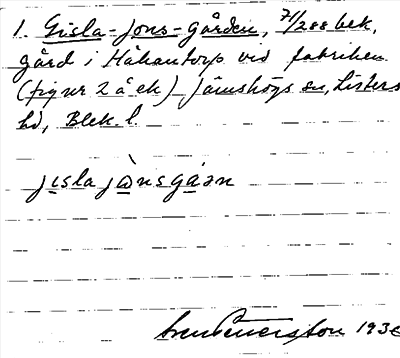 1. Gisla-Jons-gården, 71/288 bek.
gård i Håkantorp vid fabriken.
(figur 2 å ek) Jämshögs sn, Listers
hd, Blek. l.
jisla jànsgáən
1936